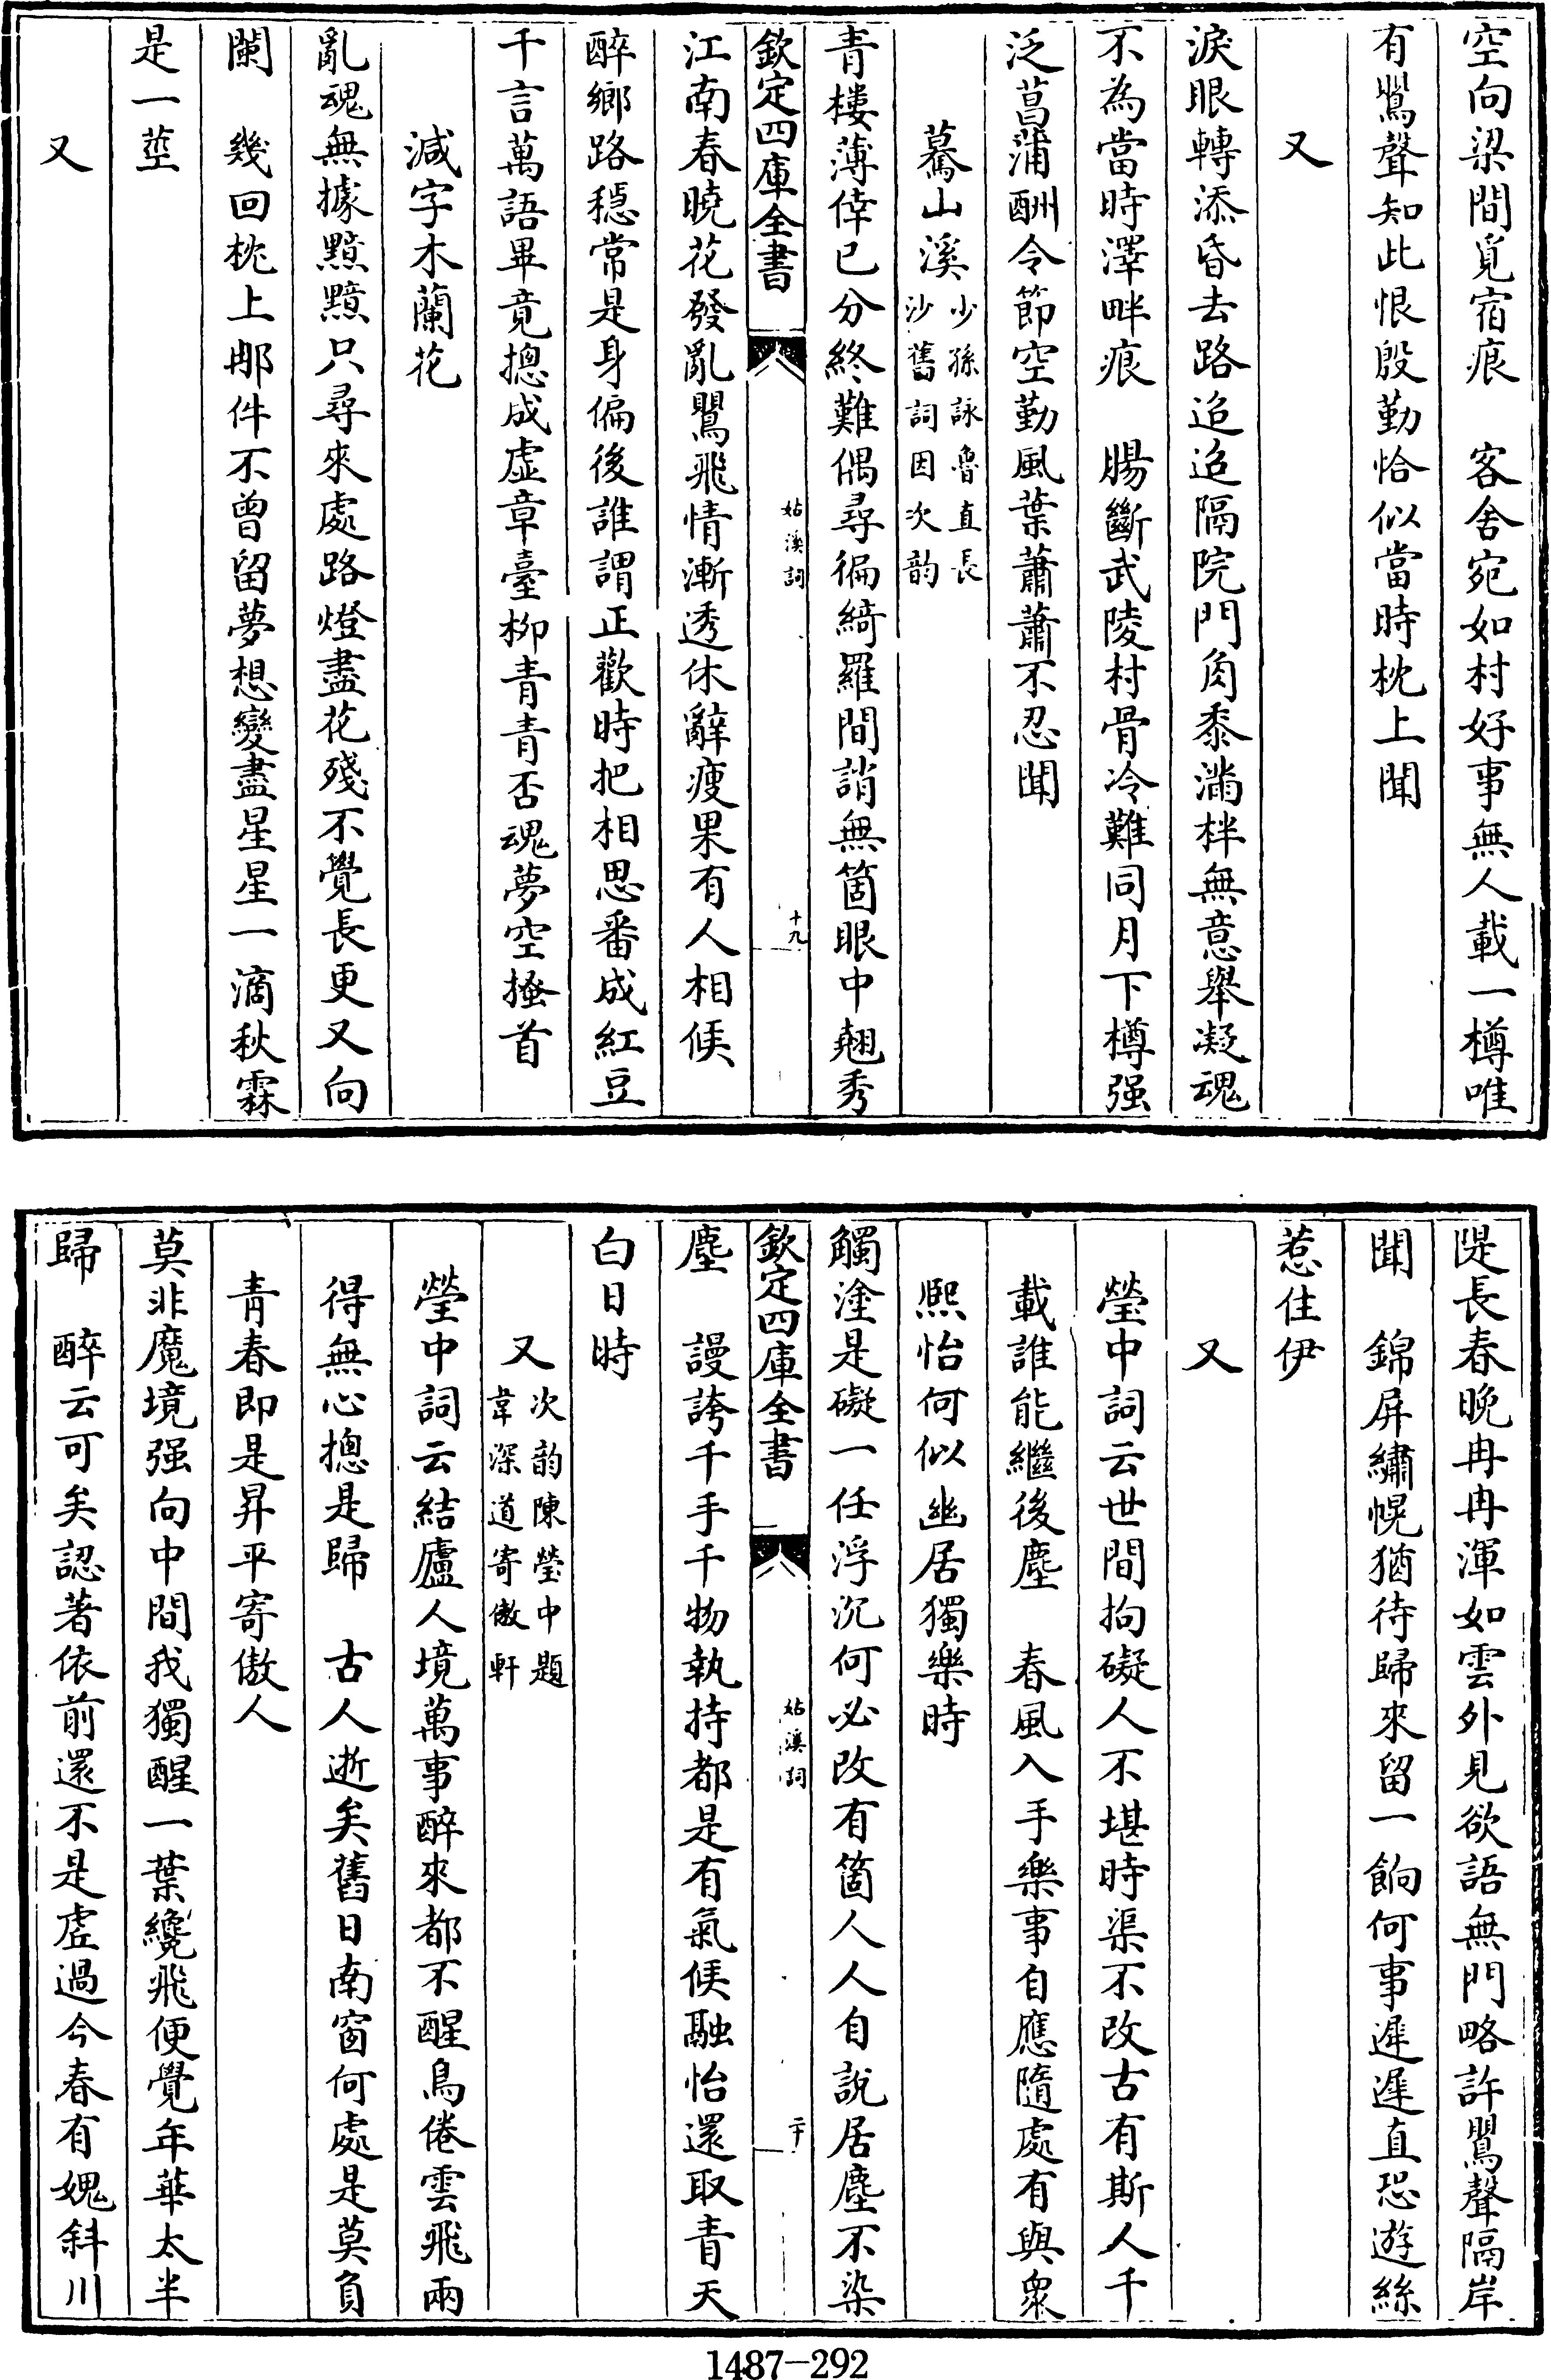 空向梁間覓宿痕　客舍宛如村好事無人載一樽唯
有鶯聲知此恨殷勤恰似當時枕上聞
又
淚眼轉添昏去路迢迢隔院門角黍滿柈無意舉凝魂
不為當時澤畔痕　腸斷武陵村骨冷難同月下樽强
泛菖蒲酬令節空勤風葉蕭蕭不忍聞
驀山溪少孫詠魯直長沙舊詞因次韵
青樓薄倖已分終難偶尋徧綺羅間誚無箇眼中翹秀
欽定四庫全書
姑溪詞
十九
江南春曉花發亂鸎飛情漸透休辭瘦果有人相候
醉鄉路穏常是身偏後誰謂正歡時把相思番成紅豆
千言萬語畢竟摠成虛章臺栁青青否魂夢空搔首
減字木蘭花
亂魂無據黯黯只尋來處路燈盡花殘不覺長更又向
闌　幾回枕上那件不曽留夢想變盡星星一滴秋霖
是一莖
又
隄長春晚冉冉渾如雲外見欲語無門略許鸎聲隔岸
聞　錦屏繡幌猶待歸來留一餉何事遲遲直恐遊絲
惹住伊
又
瑩中詞云世間拘礙人不堪時渠不改古有斯人千
載誰能繼後塵　春風入手樂事自應隨處有與衆
熙怡何似幽居獨樂時
觸塗是礙一任浮沉何必改有箇人人自說居塵不染
欽定四庫全書
姑溪詞
二十
塵　謾誇千手千物執持都是有氣候融怡還取青天
白日時
又次韵陳瑩中題韋深道寄傲軒
瑩中詞云結廬人境萬事醉來都不醒鳥倦雲飛兩
得無心摠是歸　古人逝矣舊日南窗何處是莫負
青春即是昇平寄傲人
莫非魔境强向中間我獨醒一葉纔飛便覺年華太半
歸　醉云可矣認著依前還不是虛過今春有媿斜川
1487—292